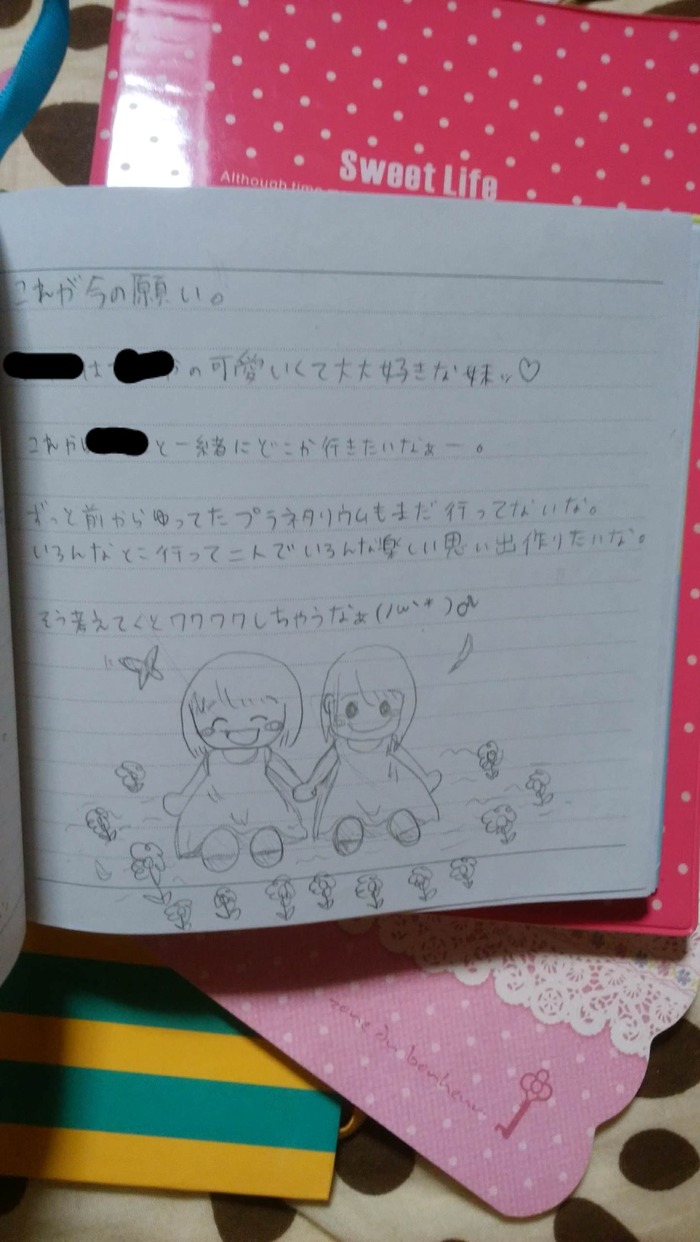 Sweet Life
Although time
これが今の願い。
は の可愛いくて大大好きな妹ッ♡
これから と一緒にどこか行きたいなぁー。
ずっと前からゆってたプラネタリウムもまだ行ってないな。
いろんなとこ行って二人でいろんな楽しい思い出作りたいな。
そう考えてくとワクワクしちゃうなぁ(ﾉω`*)